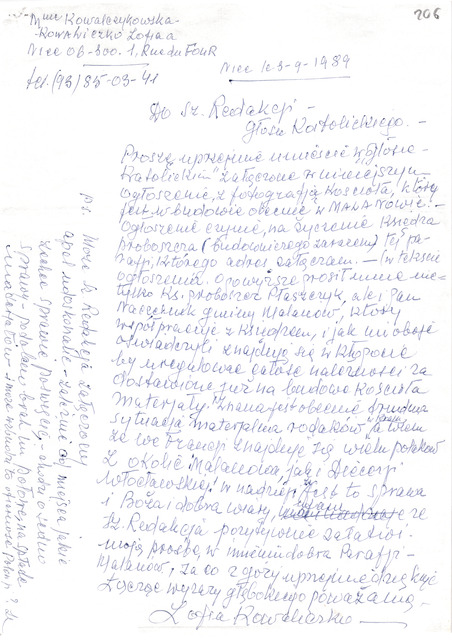 206
Mme Kowalczykowska-
-Kowaliczko Zofia
Nice 06-300. 1, Rue du Four
tel. (93) 85-03-41
Nice le 3-9-1989
Do Sz. Redakcji -
Głosu Katolickiego. -
Proszę uprzejmie umieścić w "Głosie
Katolickim" załączone w niniejszym
ogłoszenie, z fotografią Kościoła, który
jest w budowie obecnie w Malanowie. -
Ogłoszenie czynię, na życzenie Księdza
proboszcza (budowniczego zarazem) tej pa-
rafji, którego adres załączam. - (w tekście
ogłoszenia. O powyższe prosił mnie nie-
tylko Ks. proboszcz Płaszczyk, ale i Pan
Naczelnik gminy Malanów, który
współpracuje z Księdzem, i jak mi oboje
oświadczyli znajdują się w kłopocie
by uregulować całość należności za
dostawione już na budowę Kościoła
materjały. Znając obecnie trudną
sytuację materialną rodaków w kraju, a wiem
że we Francji znajduje się wielu polaków
z okolic Malanowa, jak i Diecezji
Włocławskiej w nadzieji, że jest to sprawa
i Boża i dobra wiary, że
Sz. Redakcja pozytywnie załatwi
moją prośbę, w imieniu dobra Parafji -
Malanów, za co z góry uprzejmie dziękuję
Łącząc wyrazy głębokiego poważania -
Zofia Kowaliczko
Ps. Może Sz. Redakcja załączony
apel zależnie od miejsca jakie
zechce sprawie poświęcić, chodzi o sedno
sprawy - podałam
materjałów - i może